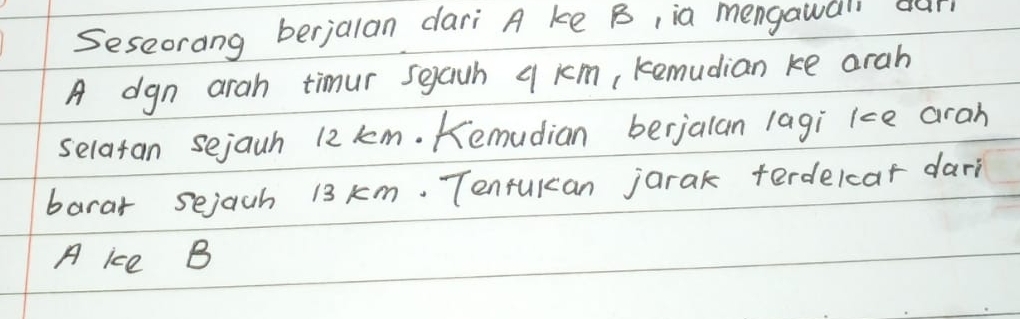 Seseorang berjalan dari A ke B, ia mengawali dari
A dgn arah timur sejauh 4 km, kemudian ke arah
selatan sejauh 12 km. Kemudian berjalan lagi ke arah
barat sejauh 13 km. Tentukan jarak terdekat dari
A ke B